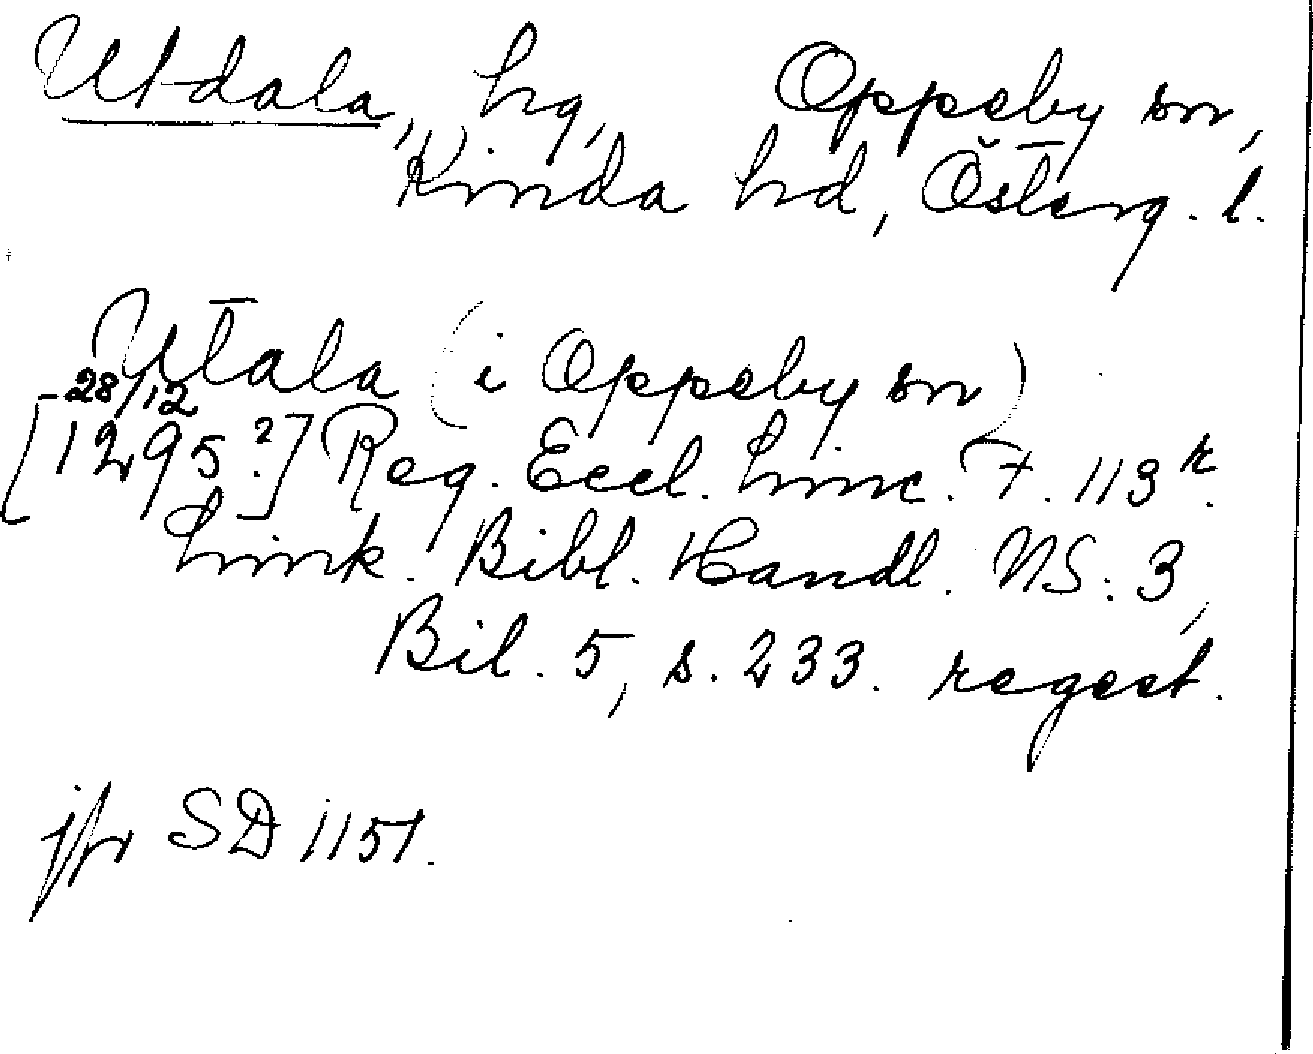 Utdala, hg, Oppeby sn,
Kinda hd, Österg. l.
Utala (i Oppeby sn)
-28/12
[1295?] Reg. Eccl. Linc. F. 113r.
Link. Bibl. Handl. NS: 3,
Bil. 5, s. 233. regest.
jfr SD 1151.